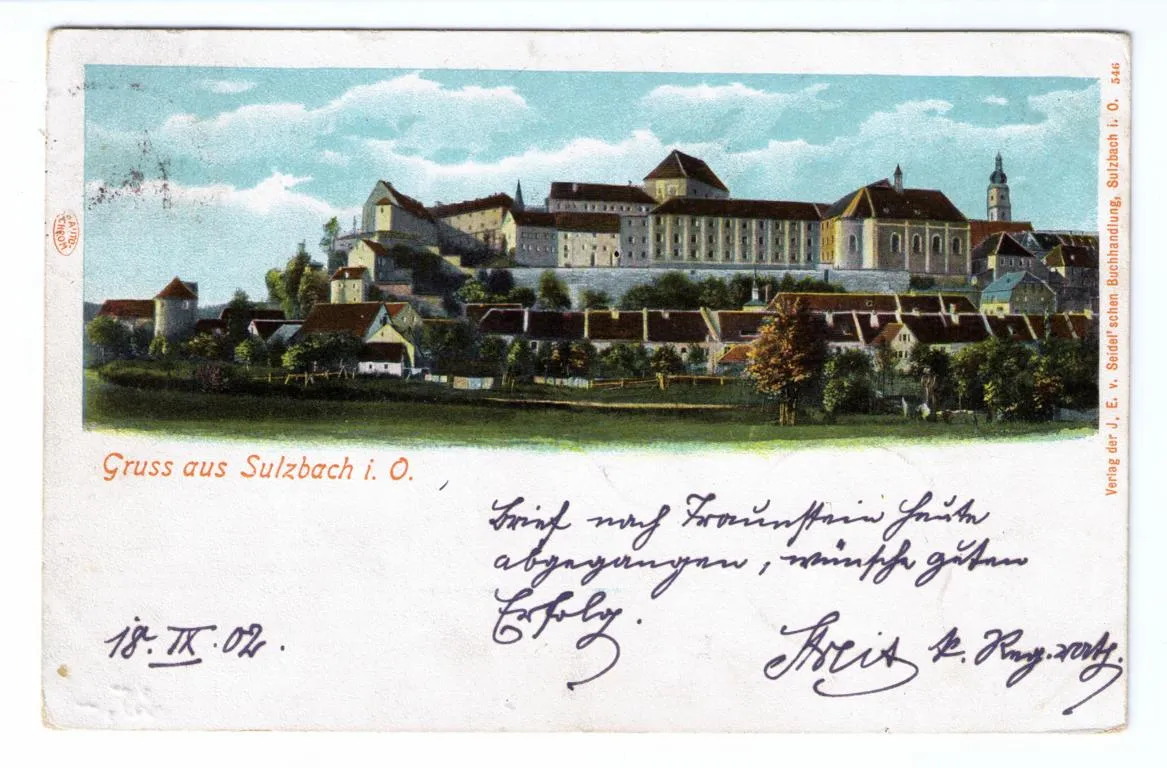 AUTO-
CHROM
Gruss aus Sulzbach i. O.
Verlag der J. E. v. Seidel'schen Buchhandlung, Sulzbach i. O. 546
Brief nach Traunstein heute
abgegangen, wünsche guten
Erfolg.
18. IX. 02.
k. Reg.rath.